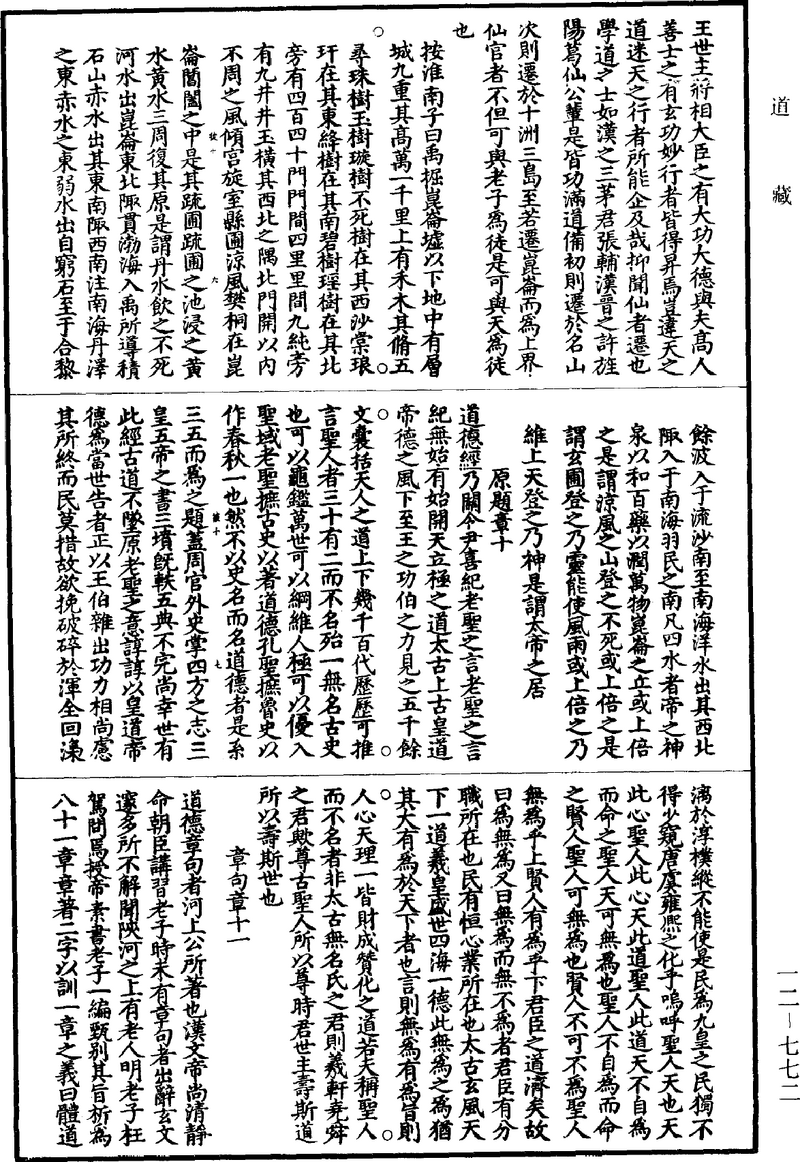 道藏
王世主將相大臣之有大功大德與夫高人
善士之有玄功妙行者皆得昇焉豈違天之
道迷天之行者所能企及哉抑聞仙者遷也
學道之士如漢之三茅君張輔漢晉之許旌
陽葛仙公輩是皆功滿道備初則遷於名山
次則遷於十洲三島至若遷崑崙而為上界
仙官者不但可與老子為徒是可與天為徒
也
按淮南子曰禹掘崑崙墟以下地中有層
城九重其高萬一千里上有禾木其脩五
尋珠樹玉樹璇樹不死樹在其西沙棠琅
玕在其東絳樹在其南碧樹瑶樹在其北
旁有四百四十門門間四里里間九純旁
有九井井玉橫其西北之隅北門開以內
不周之風傾宫旋室縣圃涼風樊桐在崑
崙閶闔之中是其疏圃疏圃之池浸之黄
水黄水三周復其原是謂丹水飲之不死
河水出崑崙東北陬貫渤海入禹所導積
石山赤水出其東南陬西南注南海丹澤
之東赤水之東弱水出自窮石至于合黎
餘波入于流沙南至南海洋水出其西北
陬入于南海羽民之南凡四水者帝之神
泉以和百藥以潤萬物崑崙之丘或上倍
之是謂涼風之山登之不死或上倍之是
謂玄圃登之乃靈能使風雨或上倍之乃
維上天登之乃神是謂太帝之居
原題章十
道德經乃關令尹喜紀老聖之言老聖之言
紀無始有始開天立極之道太古上古皇道
帝德之風下至王之功伯之力見之五千餘
文囊括天人之道上下幾千百代歷歷可推
言聖人者三十有二而不名殆一無名古史
也可以龜鑑萬世可以綱維人極可以優入
聖域老聖摭古史以著道德孔聖摭魯史以
作春秋一也然不以史名而名道德者是系
三五而為之題蓋周官外史掌四方之志三
皇五帝之書三墳既軼五典不完尚幸世有
此經古道不墜原老聖之意諄諄以皇道帝
德為當世告者正以王伯雜出功力相尚慮
其所終而民莫措故欲挽破碎於渾全回澆
漓於淳樸縱不能使是民為九皇之民獨不
得少窺唐虞雍熙之化乎嗚呼聖人天也天
此心聖人此心天此道聖人此道天不自為
而命之聖人天可無為也聖人不自為而命
之賢人聖人可無為也賢人不可不為聖人
無為乎上賢人有為乎下君臣之道濟矣故
曰為無為又曰無為而無不為者君臣有分
職所在也民有恒心業所在也太古玄風天
下一道羲皇盛世四海一德此無為之為猶
其大有為於天下者也言則無為有為旨則
人心天理一皆財成贊化之道若夫稱聖人
而不名者非太古無名氏之君則羲軒堯舜
之君歟尊古聖人所以尊時君世主壽斯道
所以壽斯世也
章句章十一
道德章句者河上公所著也漢文帝尚清靜
命朝臣講習老子時未有章句者出辭玄文
邃多所不解聞陝河之上有老人明老子枉
駕問焉授帝素書老子一編甄别其旨析為
八十一章章著二字以訓一章之義曰體道
一二—七七二